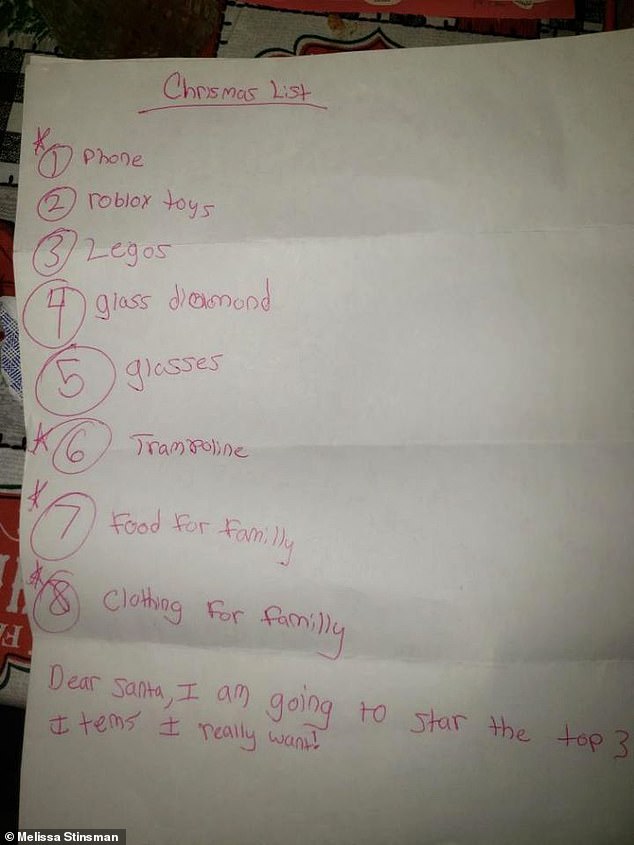 Chrismas List
* 1 Phone
2 roblox toys
3 Legos
4 glass diamond
5 glasses
* 6 Trampoline
* 7 Food for familly
* 8 Clothing for familly
Dear Santa, I am going to star the top 3
Items I really want!
© Melissa Stinsman